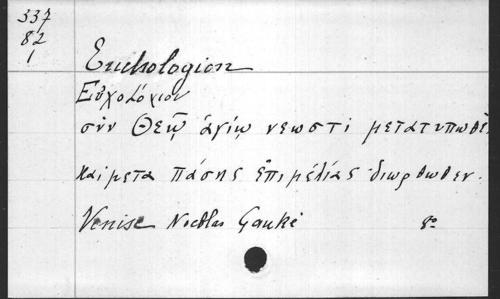 337
82
1
Euchologion
Εὐχολόγιον
σὺν Θεῷ ἁγίῳ νεωστὶ μετατυπωθὲ.
καὶ μετα πάσης ἐπιμελίας διωρθωθεν.
Venise Nicolas 8º